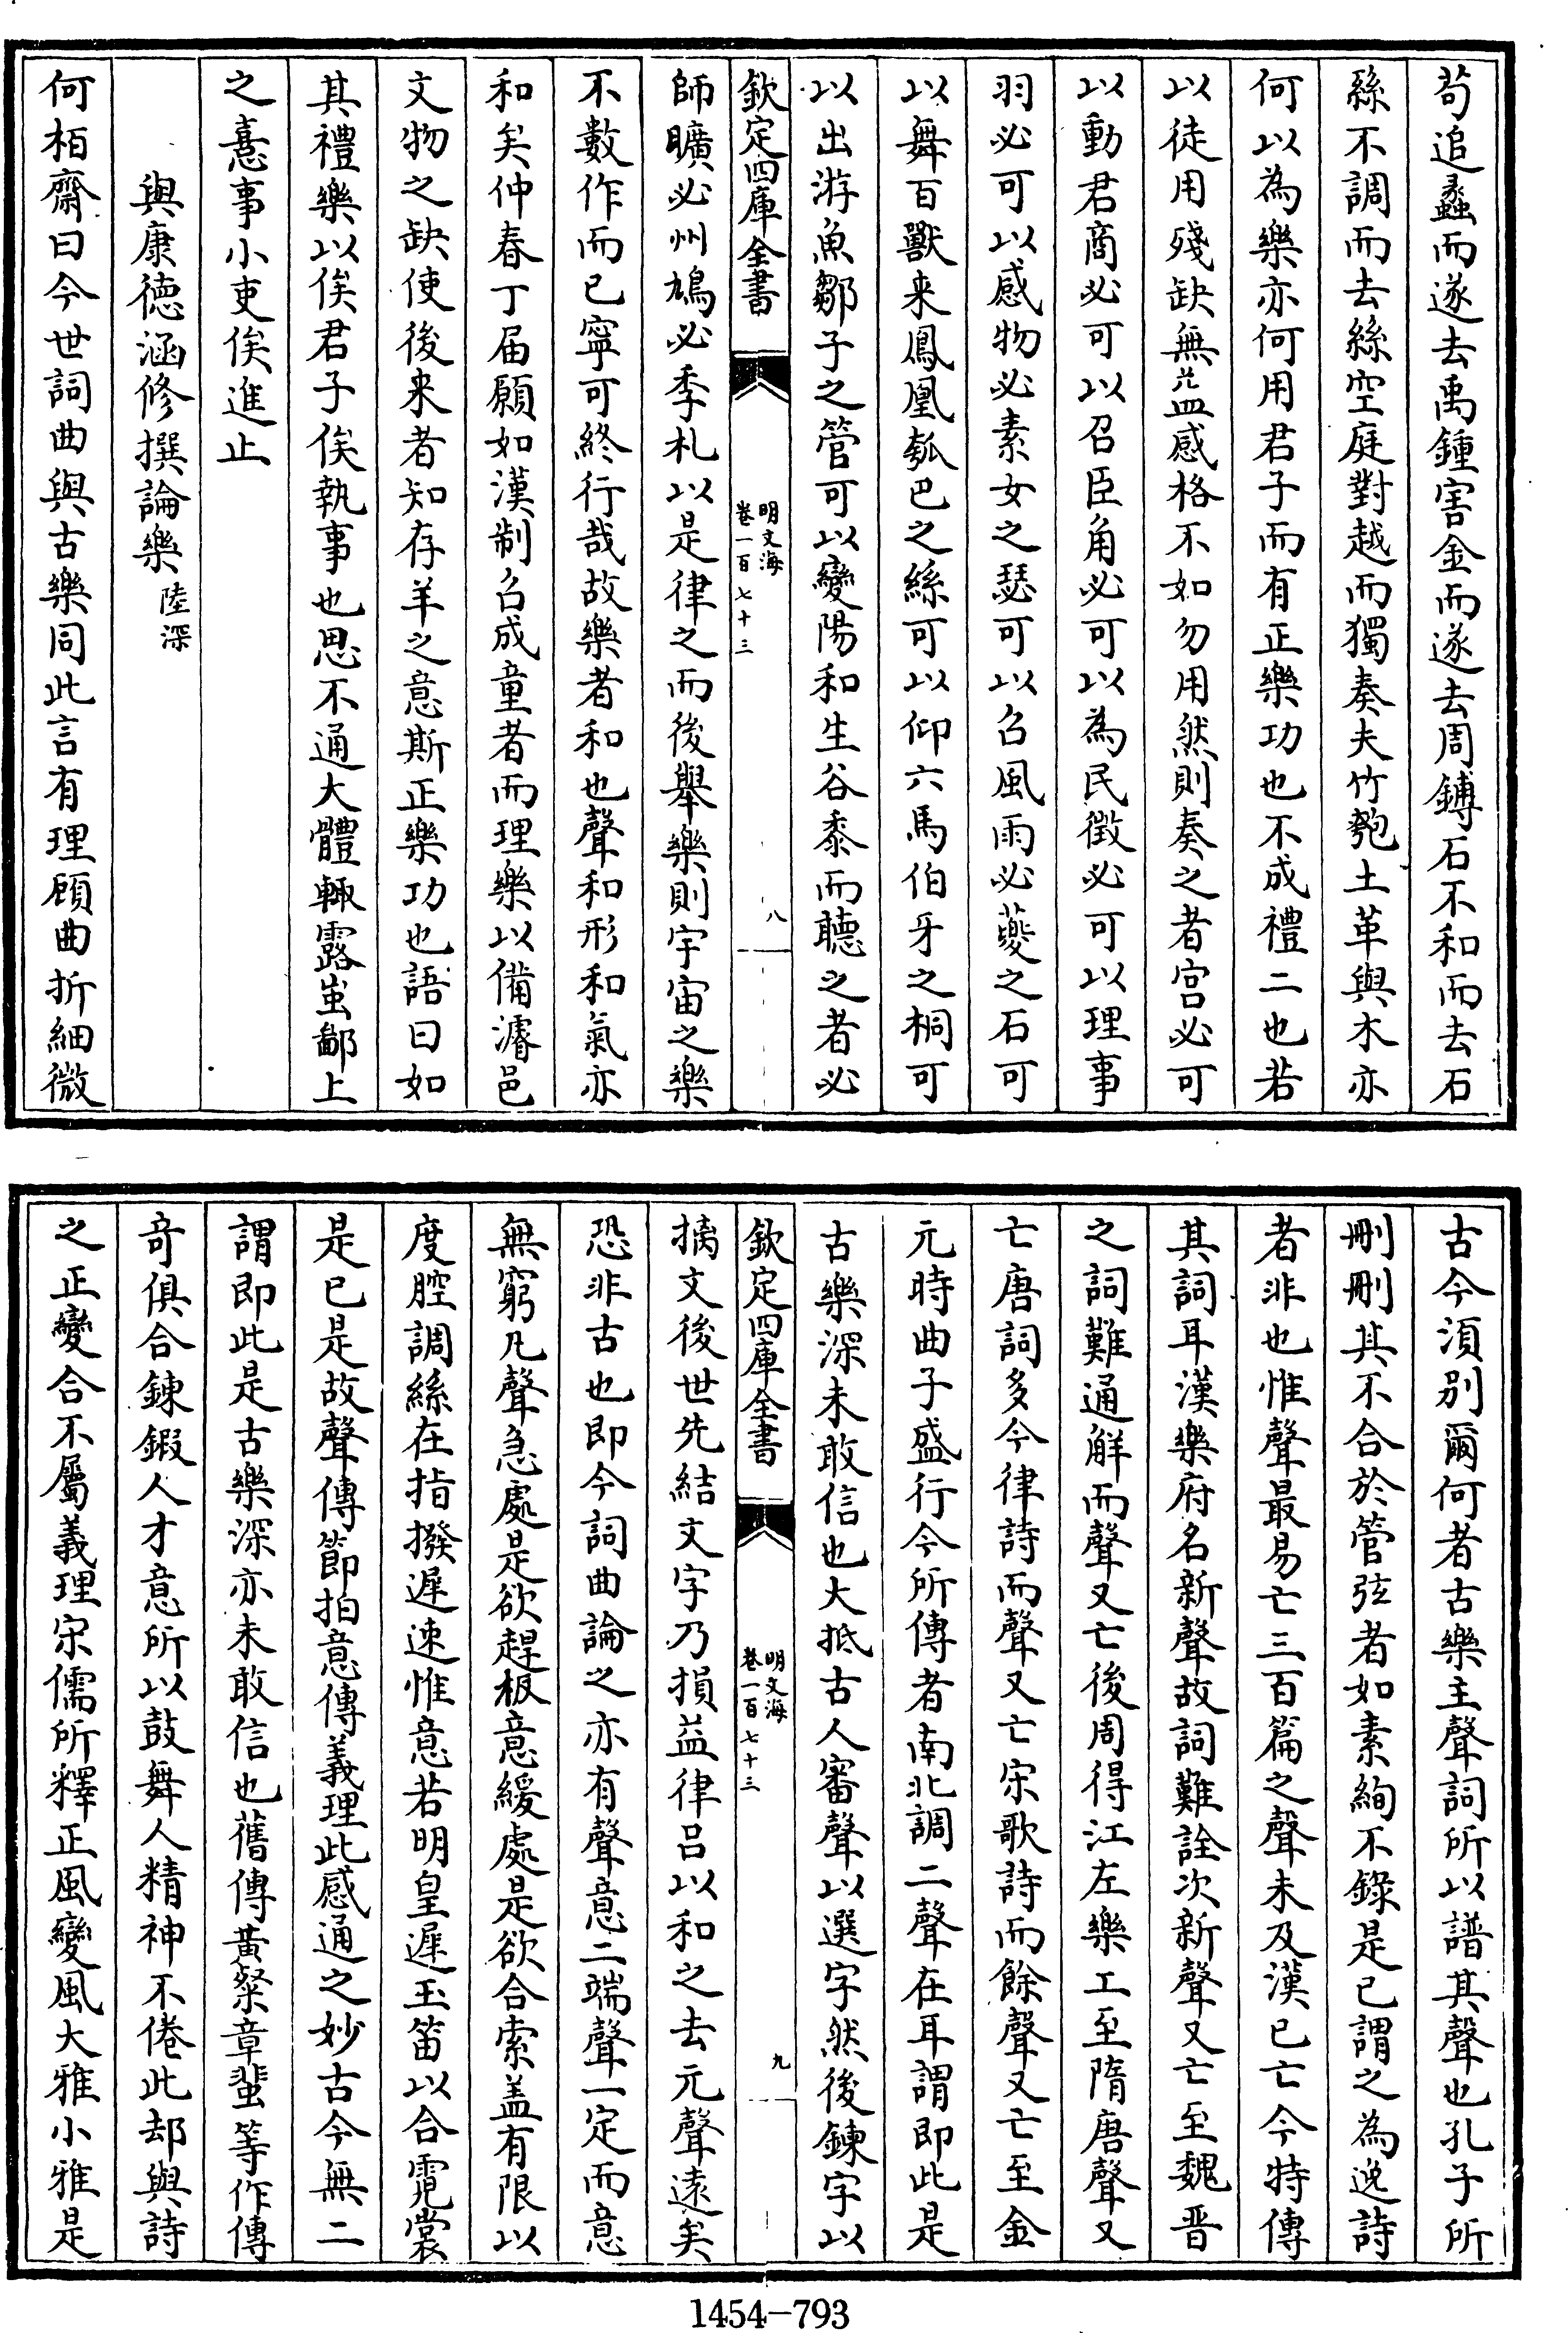 苟追蠡而遂去禹鍾害金而遂去周鎛石不和而去石
絲不調而去絲空庭對越而獨奏夫竹匏土革與木亦
何以為樂亦何用君子而有正樂功也不成禮二也若
以徒用殘缺無益感格不如勿用然則奏之者宫必可
以動君商必可以召臣角必可以為民徴必可以理事
羽必可以感物必素女之瑟可以召風雨必夔之石可
以舞百獸来鳳凰瓠巴之絲可以仰六馬伯牙之桐可
以出游魚鄒子之管可以變陽和生谷黍而聽之者必
欽定四庫全書
明文海
卷一百七十三
八
師曠必州鳩必季札以是律之而後舉樂則宇宙之樂
不數作而已寧可終行哉故樂者和也聲和形和氣亦
和矣仲春丁届願如漢制召成童者而理樂以備濬邑
文物之缺使後来者知存羊之意斯正樂功也語曰如
其禮樂以俟君子俟執事也思不通大體輒露蚩鄙上
之憙事小吏俟進止
與康德涵修撰論樂 陸深
何栢齋曰今世詞曲與古樂同此言有理顧曲折細微
古今湏别爾何者古樂主聲詞所以譜其聲也孔子所
刪刪其不合於管弦者如素絢不錄是已謂之為逸詩
者非也惟聲最易亡三百篇之聲未及漢已亡今特傳
其詞耳漢樂府名新聲故詞難詮次新聲又亡至魏晋
之詞難通觧而聲又亡後周得江左樂工至隋唐聲又
亡唐詞多今律詩而聲又亡宋歌詩而餘聲又亡至金
元時曲子盛行今所傳者南北調二聲在耳謂即此是
古樂深未敢信也大抵古人審聲以選字然後鍊字以
欽定四庫全書
明文海
卷一百七十三
九
摛文後世先結文字乃損益律吕以和之去元聲逺矣
恐非古也即今詞曲論之亦有聲意二端聲一定而意
無窮凡聲急處是欲趕板意緩處是欲合索盖有限以
度腔調絲在指撥遲速惟意若明皇遲玉笛以合霓裳
是已是故聲傳節拍意傳義理此感通之妙古今無二
謂即此是古樂深亦未敢信也舊傳黄粲章蜚等作傳
竒俱合鍊鍜人才意所以鼓舞人精神不倦此却與詩
之正變合不屬義理宋儒所釋正風變風大雅小雅是
1454-793